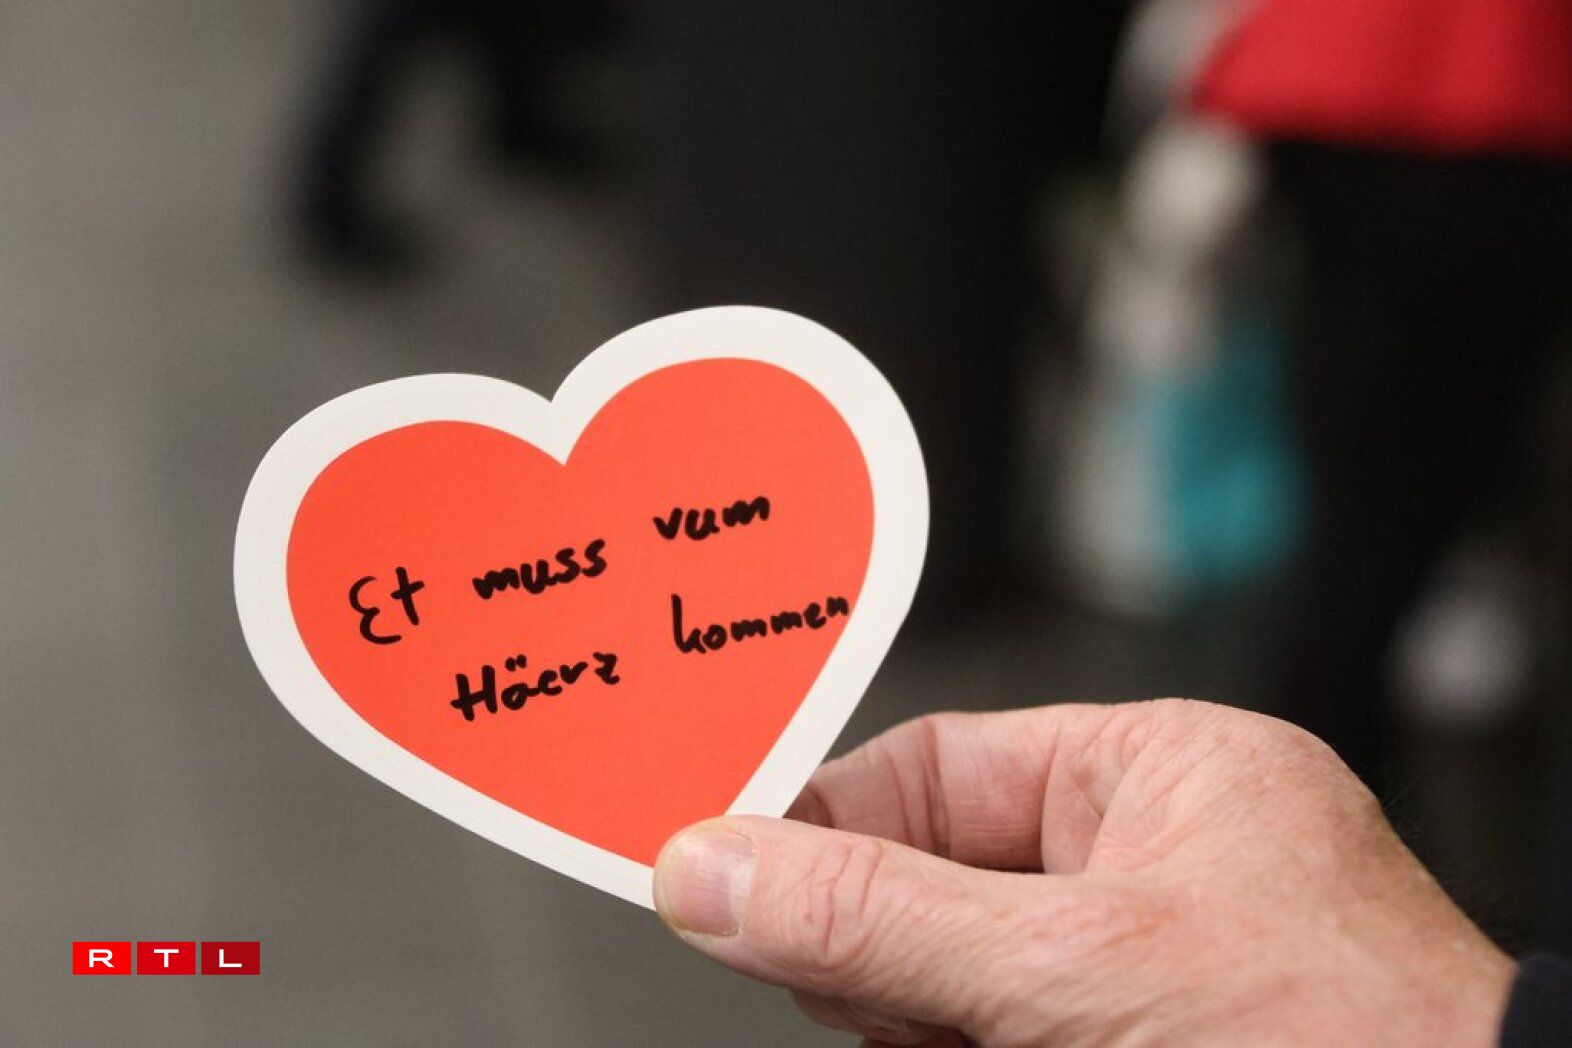 Et muss vum
Häerz kommen
RTL